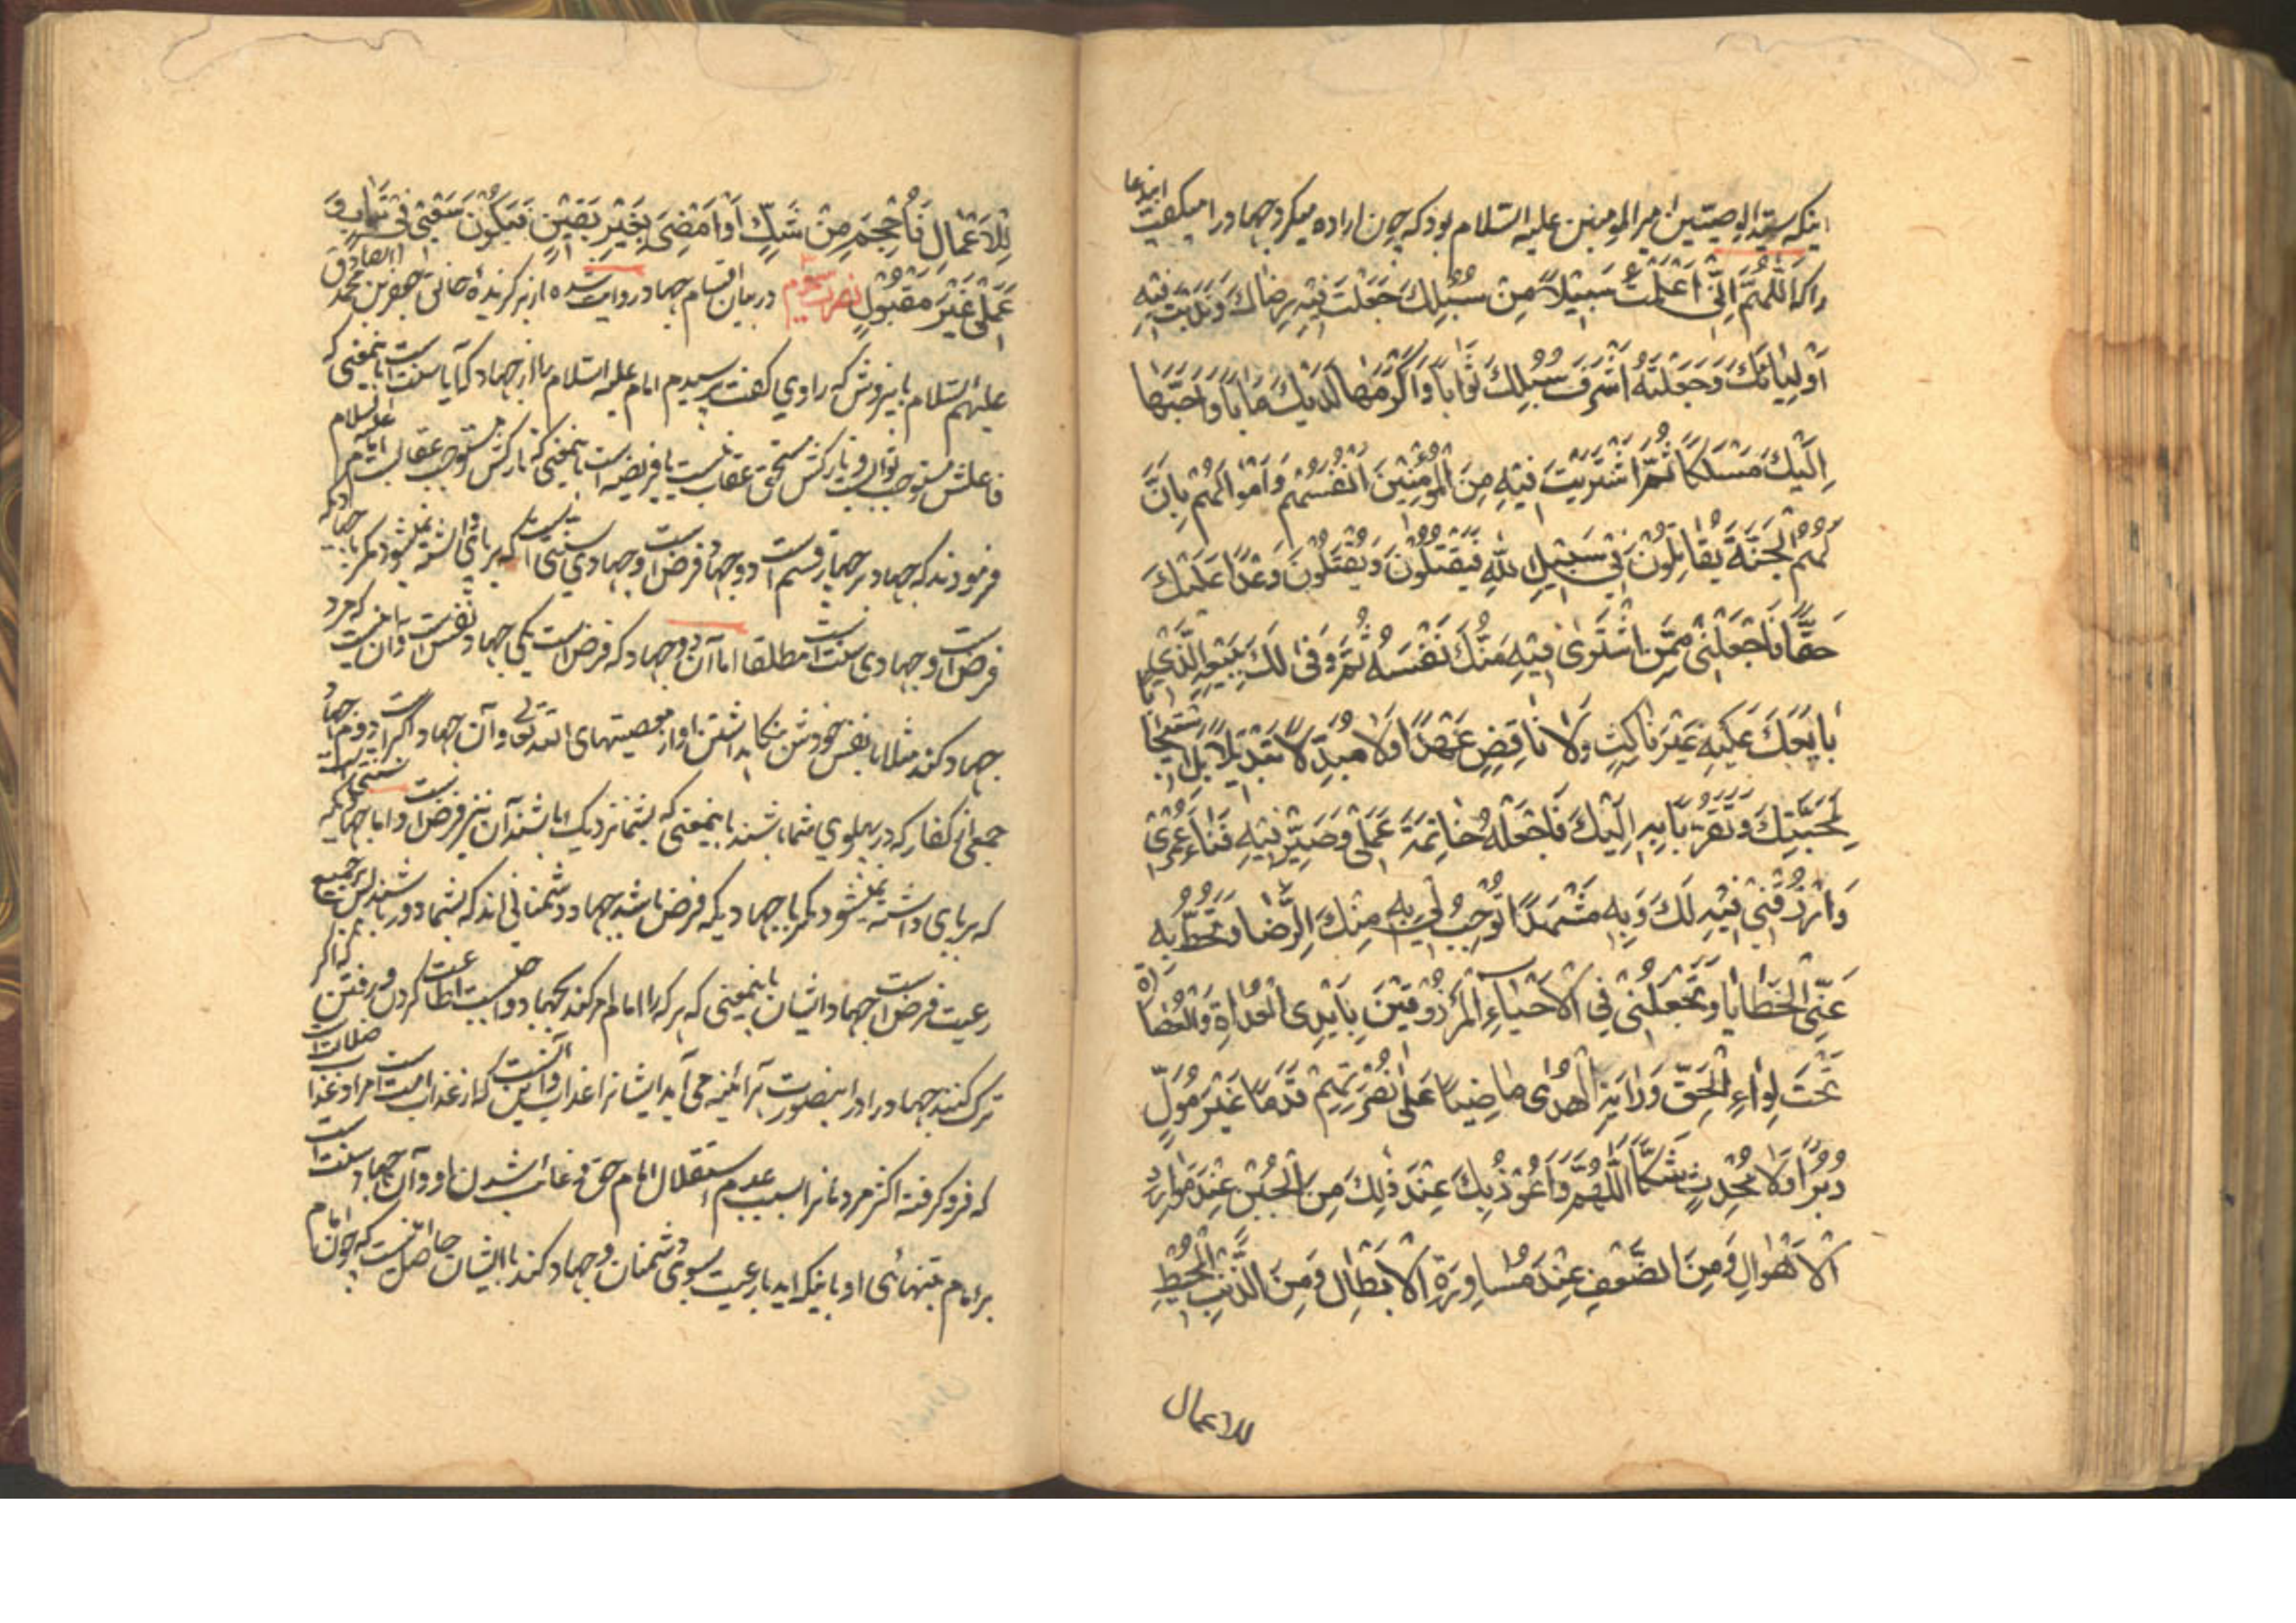 اینکه سید الوصیین امیر المومنین علیه السلام بود که چون اراده میکرد جهاد را میکفت ایندعا
را که اَللّهُمَّ اِنّی اَعْلَمْتَ سَبیلاً مِنْ سُبُلِكَ جَعَلْتَ فیهِ رِضاكَ وَنَدَبْتَ اِلَیْهِ
اَوْلِیائَكَ وَجَعَلْتَهُ اَشْرَفَ سُبُلِكَ ثَواباً وَاَكْرَمَها لَدَیْكَ مَاباً وَاَحَبَّها
اِلَیْكَ مَسْلَكاً ثُمَّ اشْتَرَیْتَ فیهِ مِنَ الْمُؤْمِنینَ اَنْفُسَهُمْ وَاَمْوالَهُمْ بِاَنَّ
لَهُمُ الْجَنَّةَ یُقاتِلُونَ فی سَبیلِ اللهِ فَیَقْتُلُونَ وَیُقْتَلُونَ وَعْدًا عَلَیْكَ
حَقًّا فَاجْعَلْنی مِمَّنِ اشْتَری فیهِ مِنْكَ نَفْسَهُ ثُمَّ وَفی لَكَ بِبَیْعِهِ الَّذی
بایَعَكَ عَلَیْهِ غَیْرَ ناكِثٍ وَلا ناقِضٍ عَهْدًا وَلا مُبَدِّلاً تَبْدیلاً بَلِ اسْتیجابًا
لِمَحَبَّتِكَ وَتَقَرُّبًا بِهِ اِلَیْكَ فَاجْعَلْهُ خاتِمَةَ عَمَلی وَصَیِّرْ فیهِ فَناءَ عُمْری
وَارْزُقْنی فیهِ لَكَ وَبِهِ مَشْهَدًا تُوجِبُ لی بِهِ مِنْكَ الرِّضا وَتَحُطُّ بِهِ
عَنِّی الْخَطایا وَتَجْعَلُنی فِی الْاَحْیاءِ الْمَرْزُوقینَ بِاَیْدِی الْعُداةِ وَالْعُصاةِ
تَحْتَ لِواءِ الْحَقِّ وَرایَةِ الْهُدی ماضِیاً عَلی نُصْرَتِهِمْ قَدَماً غَیْرَ مُوَلٍّ
دُبُرًا وَلا مُحْدِثٍ شَكًّا اَللّهُمَّ وَاَعُوذُ بِكَ عِنْدَ ذلِكَ مِنَ الْجُبْنِ عِنْدَ مَوارِدِ
الْاَهْوالِ وَمِنَ الضَّعْفِ عِنْدَ مُساوِرَةِ الْاَبْطالِ وَمِنَ الذَّنْبِ الْمُحْبِطِ
للاعمال
لِلْاَعْمالِ فَاُحْجِمَ مِنْ شَكٍّ اَوْ اَمْضِیَ بِغَیْرِ یَقینٍ فَیَكُونَ سَعْیی فی تَبابٍ وَ
عَمَلی غَیْرَ مَقْبُولٍ نصرت سوم در بیان اقسام جهاد روایت شده از برکزیدهٔ خالق جعفر بن محمد الصادق
علیهم السلام باینروش که راوی کفت پرسیدم امام علیه السلام را از جهاد که آیا سنت است بانمعنی که
فاعلش مستوجب ثواب و تارکش مستحق عقاب نیست یا فریضه است بانمعنی که تارکش مستوجب عقابست امام علیه السلام
فرمودند که جهاد بر چهار قسم است دو جهاد فرض است و جهادی سنتی است که برپای داشته نمیشود مکر با جهادیکه
فرض است و جهادی سنت است مطلقا اما آن دو جهاد که فرض است یکی جهاد نفس است و آن اینست که مرد
جهاد کند مثلا با نفس خودش بنکاه داشتن او از معصیتهای الله تعالی و آن جهاد اکبر است دوم جهاد
جمعی از کفار که در پهلوی شما باشند بانمعنی که بشما نزدیک باشند آن نیز فرض است و اما جهادیکه سنتی است
که برپای داشته نمیشود مکر با جهادیکه فرض باشد جهاد دشمنانی اند که بشما دور باشند پس بر جمیع
رعیت فرض است جهاد ایشان بانمعنی که هرکه را امام امر کند بجهاد واجبست اطاعت کردن و رفتن که اکر
ترک کنند جهاد را در اینصورت هرآینه می آید ایشانرا عذاب و این آنست که از عذاب امت است مراد عذاب ضلالت است
که فرو کرفته اکثر مردمانرا بسبب عدم استقلال امام حق و غائب شدن او و آن جهاد سنت است
بر امام بتنهائی او باینکه اید با رعیت بسوی دشمنان و جهاد کند با ایشان حاصل انست که چون امام